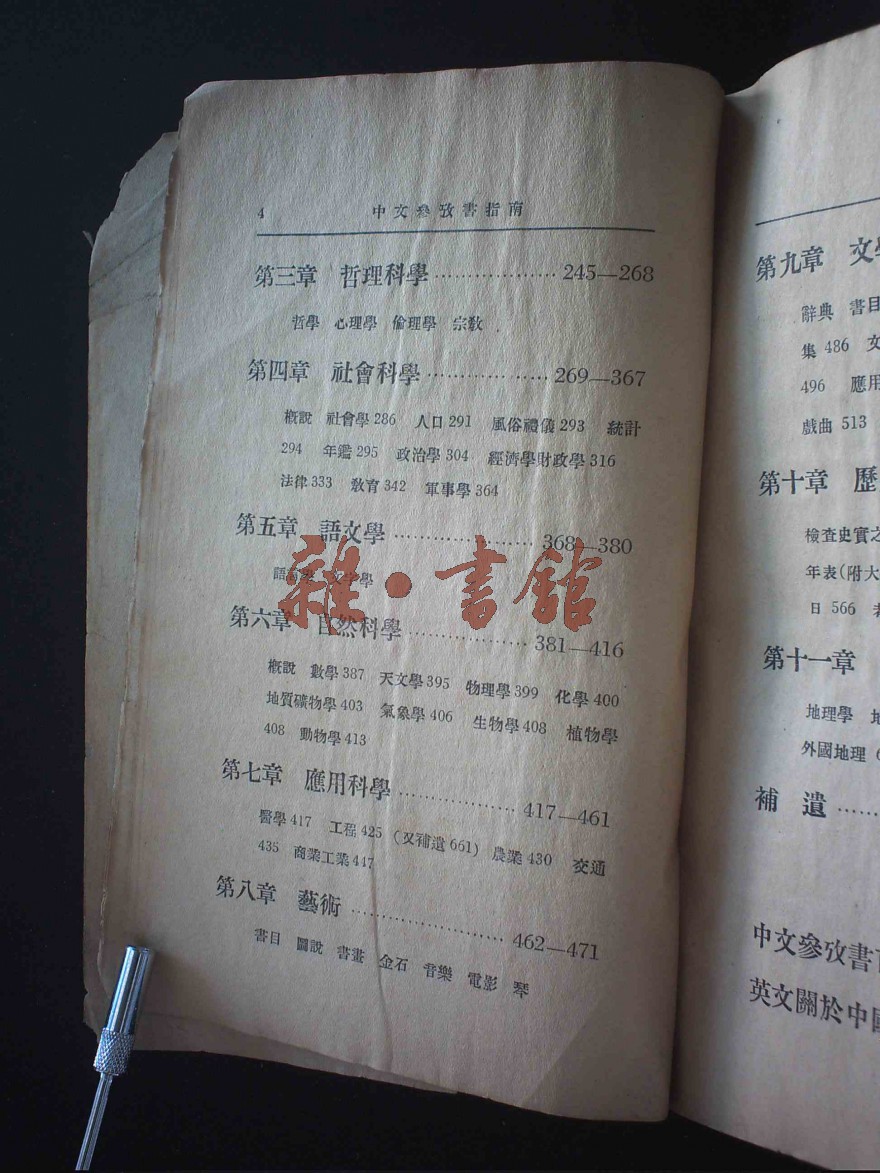 4 中文參攷書指南
第三章 哲理科學 ⋯⋯⋯⋯⋯⋯ 245—268
哲學 心理學 倫理學 宗敎
第四章 社會科學 ⋯⋯⋯⋯⋯⋯ 269—367
槪說 社會學 286 人口 291 風俗禮儀 293 統計
294 年鑑 295 政治學 304 經濟學財政學 316
法律 333 敎育 342 軍事學 364
第五章 語文學 ⋯⋯⋯⋯⋯⋯ 368—380
語言學 文字學
雜·書館
第六章 自然科學 ⋯⋯⋯⋯⋯⋯ 381—416
槪說 數學 387 天文學 395 物理學 399 化學 400
地質礦物學 403 氣象學 406 生物學 408 植物學
408 動物學 413
第七章 應用科學 ⋯⋯⋯⋯⋯⋯ 417—461
醫學 417 工程 425 (又補遺 661) 農業 430 交通
435 商業工業 447
第八章 藝術 ⋯⋯⋯⋯⋯⋯ 462—471
書目 圖說 書畫 金石 音樂 電影 琴
第九章 文學
辭典 書目
集 486 文
496 應用
戲曲 513
第十章 歷
檢查史實之
年表(附大
日 566
第十一章
地理學 地
外國地理
補遺 ⋯⋯
中文參攷書
英文關於中國